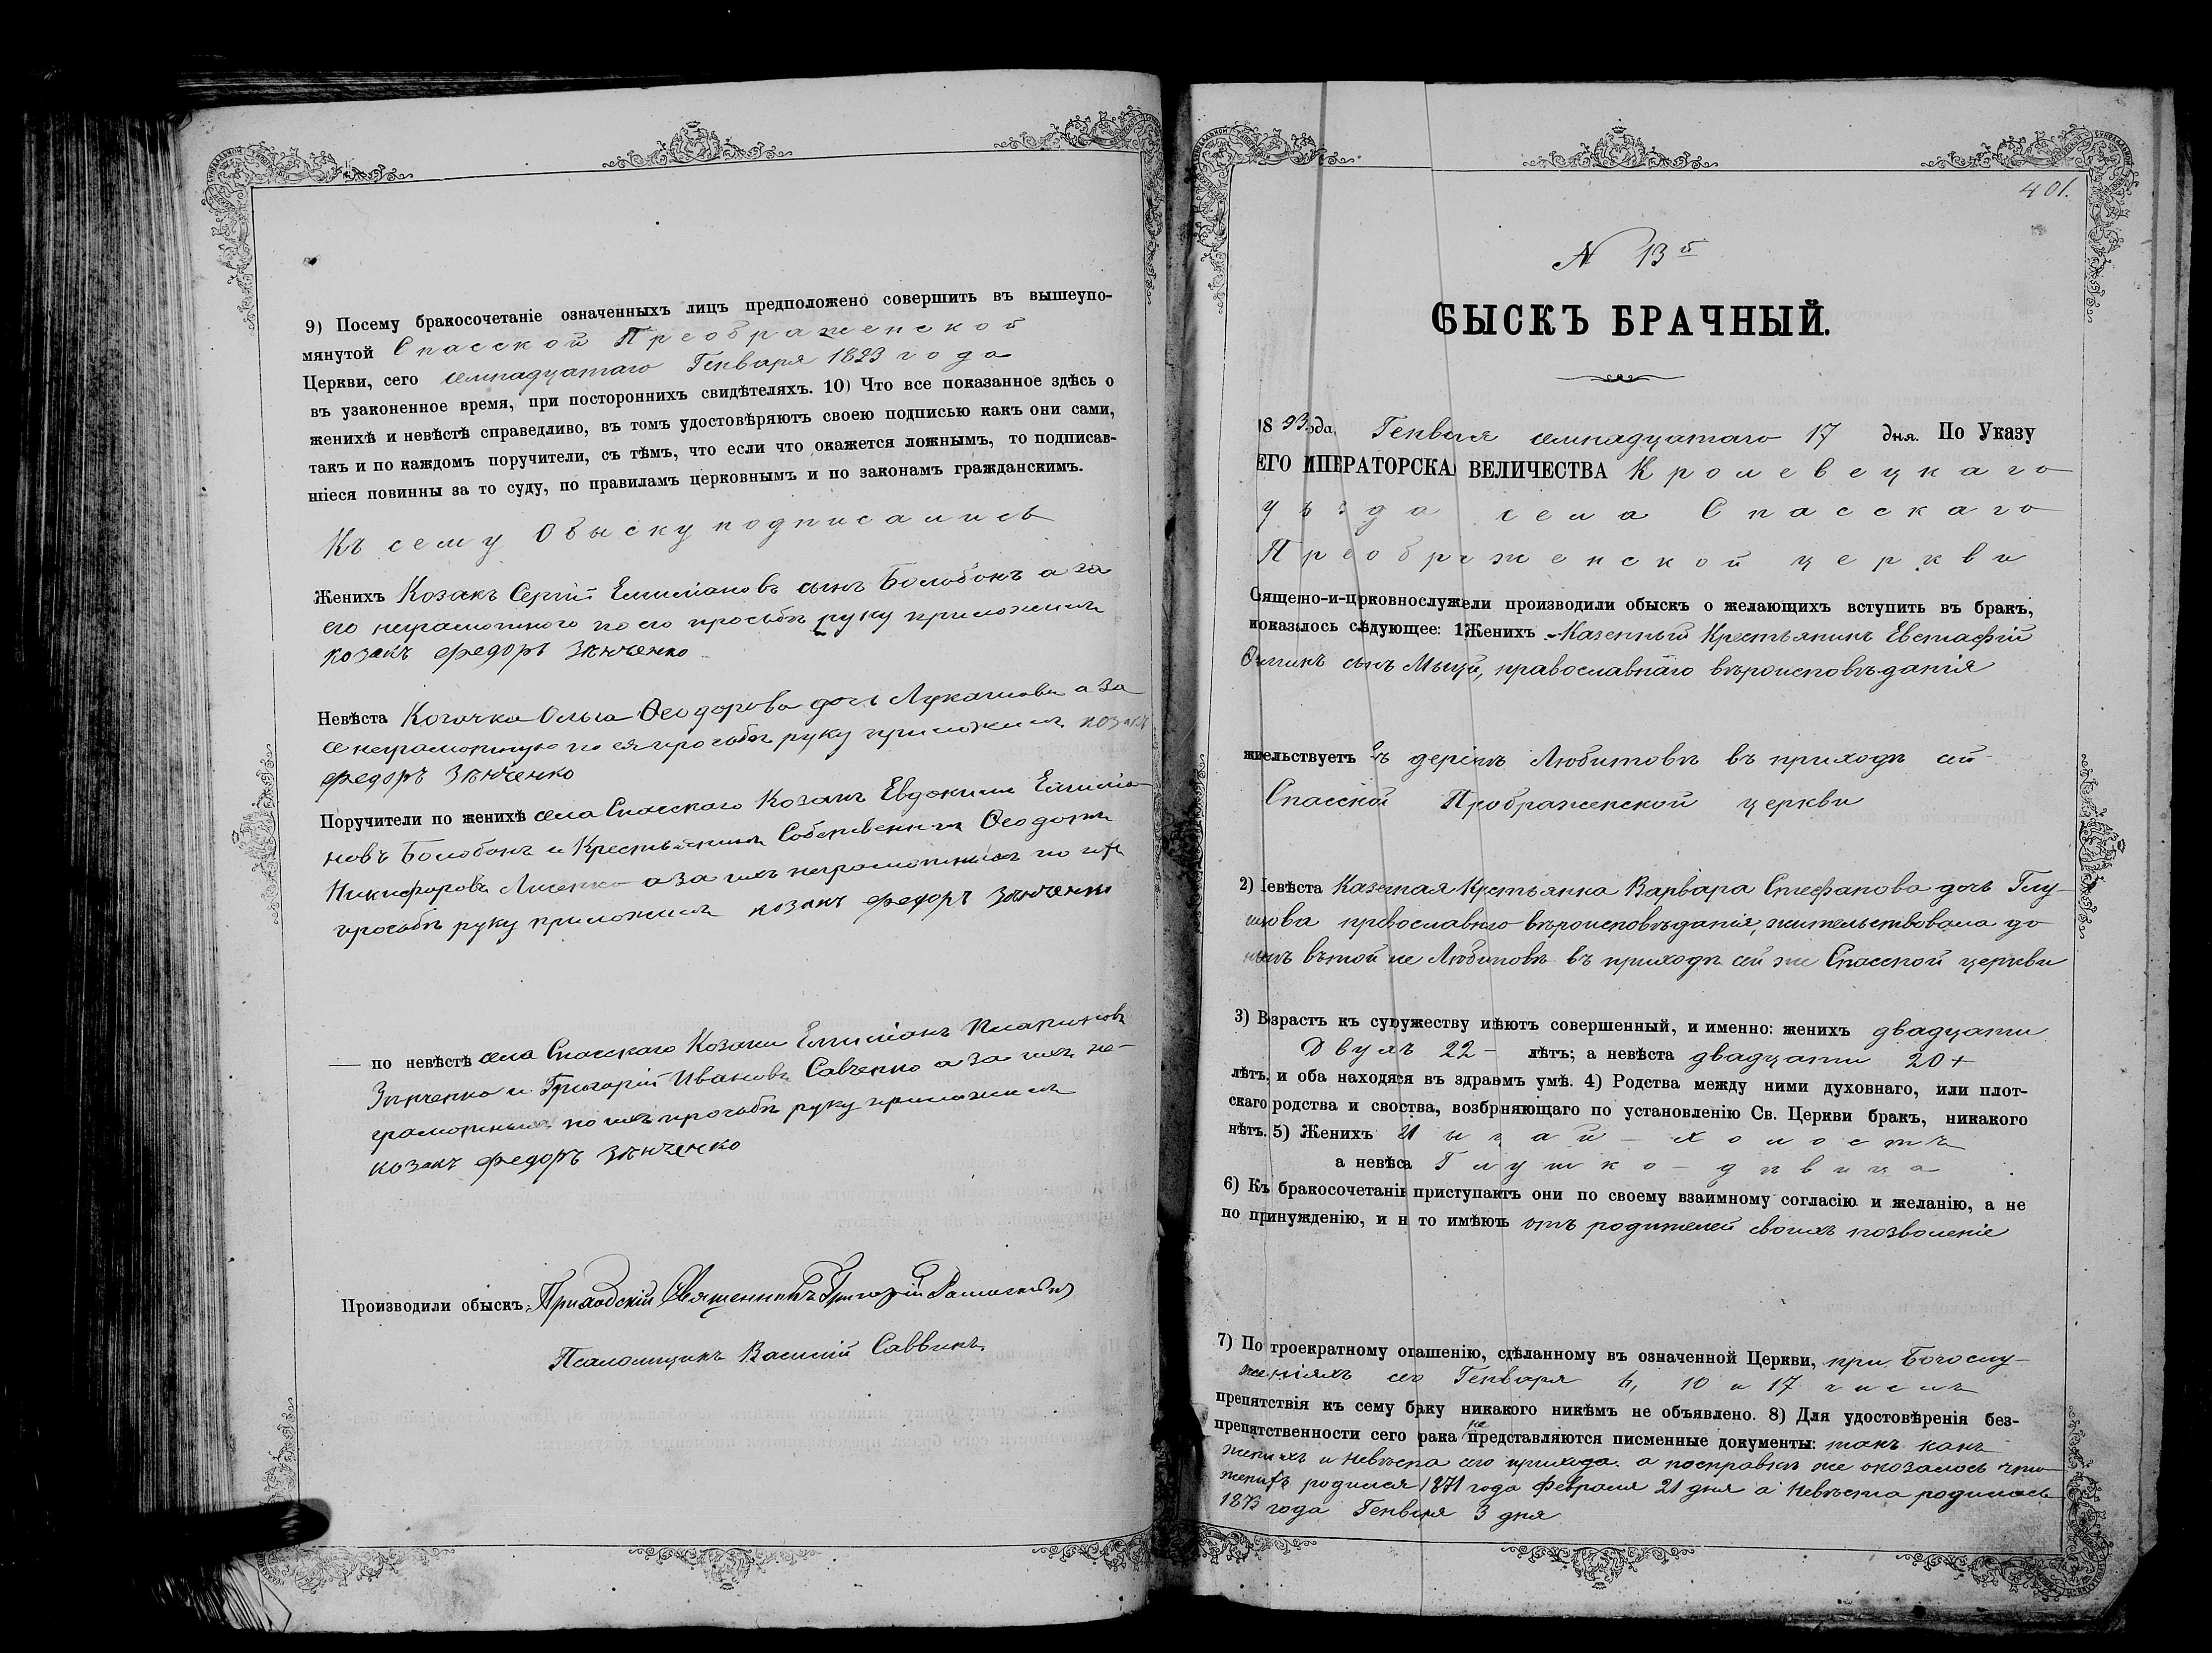 9) Посему бракосочетаніе означенныхъ лицъ предположено совершить въ вышеупо-
мянутой Спасской Преображенской
Церкви, сего семнадцатаго Генваря 1893 года
въ узаконенное время, при постороннихъ свидѣтеляхъ. 10) Что все показанное здѣсь о
женихѣ и невѣстѣ справедливо, въ томъ удостовѣряютъ своею подписью какъ они сами,
такъ и по каждомъ поручители, съ тѣмъ, что если что окажется ложнымъ, то подписав-
шіеся повинны за то суду, по правиламъ церковнымъ и по законамъ гражданскимъ.
Къ сему Обыску подписались
Женихъ Козакъ Сергій Емиліановъ сынъ Болобонъ а за
его неграмотного по его просьбѣ руку приложилъ
козакъ Федоръ Зѣнченко
Невѣста Козачка Ольга Ѳеодорова дочь Лукашова а за
ее неграмотную по ея просьбѣ руку приложилъ козакъ
Федоръ Зѣнченко
Поручители по женихѣ села Спасскаго Козакъ Евдокимъ Емиліа-
новъ Болобонъ и Крестьянинъ Собственникъ Ѳеодотъ
Никифоровъ а за ихъ неграмотныхъ по ихъ
просьбѣ руку приложилъ козакъ Федоръ Зѣнченко
— по невѣстѣ села Спасскаго Козаки Емиліанъ
Зѣнченко и Григорій Ивановъ Савченко а за ихъ не-
грамотныхъ по ихъ просьбѣ руку приложилъ
козакъ Федоръ Зѣнченко
Производили обыскъ: Приходскій Священникъ Григорій
Псаломщикъ Василій Саввинъ
401.
N 13й
БЫСКЪ БРАЧНЫЙ.
1893 ода, Генваря семнадцатаго 17 дня. По Указу
ЕГО ИПЕРАТОРСКА ВЕЛИЧЕСТВА Кролевецкаго
уѣзда села Спасскаго
Преображенской церкви
Священо-и-црковнослужели производили обыскъ о желающихъ вступить въ бракъ,
и оказалось слѣдующее: 1 Женихъ Казенный Крестьянинъ Евстафій
сынъ Мыцай, православнаго вѣроисповѣданія
жиельствуетъ въ Любитовѣ въ приходѣ сей
Спасской Преображенской церкви
2) Невѣста Казенная Крестьянка Варвара Стефанова дочь Глу-
шкова православнаго вѣроисповѣданія, жительствовала до
нынѣ въ той же Любитовѣ въ приходѣ сей же Спасской церкви
3) Возрастъ къ супружеству имѣютъ совершенный, и именно: женихъ двадцати
Двухъ 22 – лѣтъ; а невѣста двадцати 20 +
лѣтъ, и оба находяся въ здравмъ умѣ. 4) Родства между ними духовнаго, или плот-
скаго родства и своства, возбрняющаго по установленію Св. Церкви бракъ, никакого
нѣтъ. 5) Женихъ Мыцай – холостъ
а невѣса Глушко – дѣвица
6) Къ бракосочетанію приступаютъ они по своему взаимному согласію и желанію, а не
по принужденію, и н то имѣютъ отъ родителей своихъ позволеніе
7) По троекратному оглашенію, сдѣланному въ означенной Церкви, при Богослу-
женіяхъ сего Генваря 6, 10 и 17 числъ
препятствія къ сему баку никакого никѣмъ не объявлено. 8) Для удостовѣренія без-
препятственности сего рака не представляются писменные документы: такъ какъ
женихъ и невѣста сего прихода. а по справкѣ же оказалось что
женихъ родился 1871 года Февраля 21 дня а невѣста родилась
1873 года Генваря 3 дня